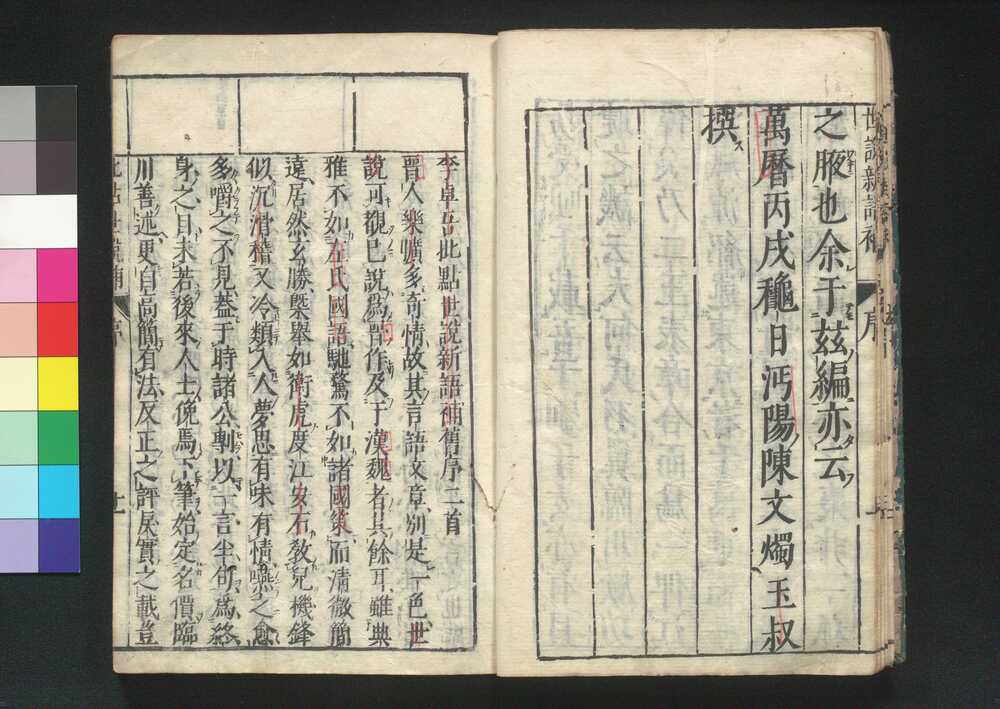 之腋也余于茲編亦云
萬曆丙戌穐日沔陽陳文燭玉叔
撰
世說新語補
序
李卓吾批點世說新語補舊序二首
晉人樂曠多奇情故其言語文章別是一色世
說可覩已說爲晉作及于漢魏者其餘耳雖典
雅不如左氏國語馳騖不如諸國策而清微簡
遠居然玄勝槩舉如衛虎度江安石敎兒機鋒
似沉滑稽又冷類入人夢思有味有情嚥之愈
多嚼之不見葢于時諸公剸以一言半句爲終
身之目未若後來人士俛焉下筆始定名價臨
川善述更自高簡有法反正之評戾實之載豈
批點世說補
序